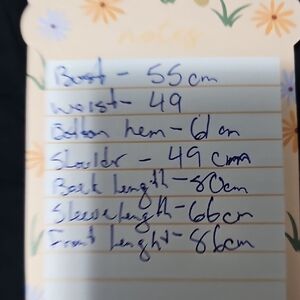 notes
Bust - 55cm
waist - 49
Bottom hem - 61cm
Shoulder - 49cm
Back length - 80cm
Sleeve length - 66cm
Front lenght - 86cm